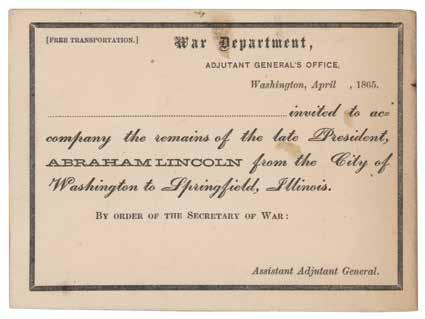 [FREE TRANSPORTATION.]
War Department,
ADJUTANT GENERAL'S OFFICE,
Washington, April , 1865.
invited to ac-
company the remains of the late President,
ABRAHAM LINCOLN from the City of
Washington to Springfield, Illinois.
BY ORDER OF THE SECRETARY OF WAR:
Assistant Adjutant General.